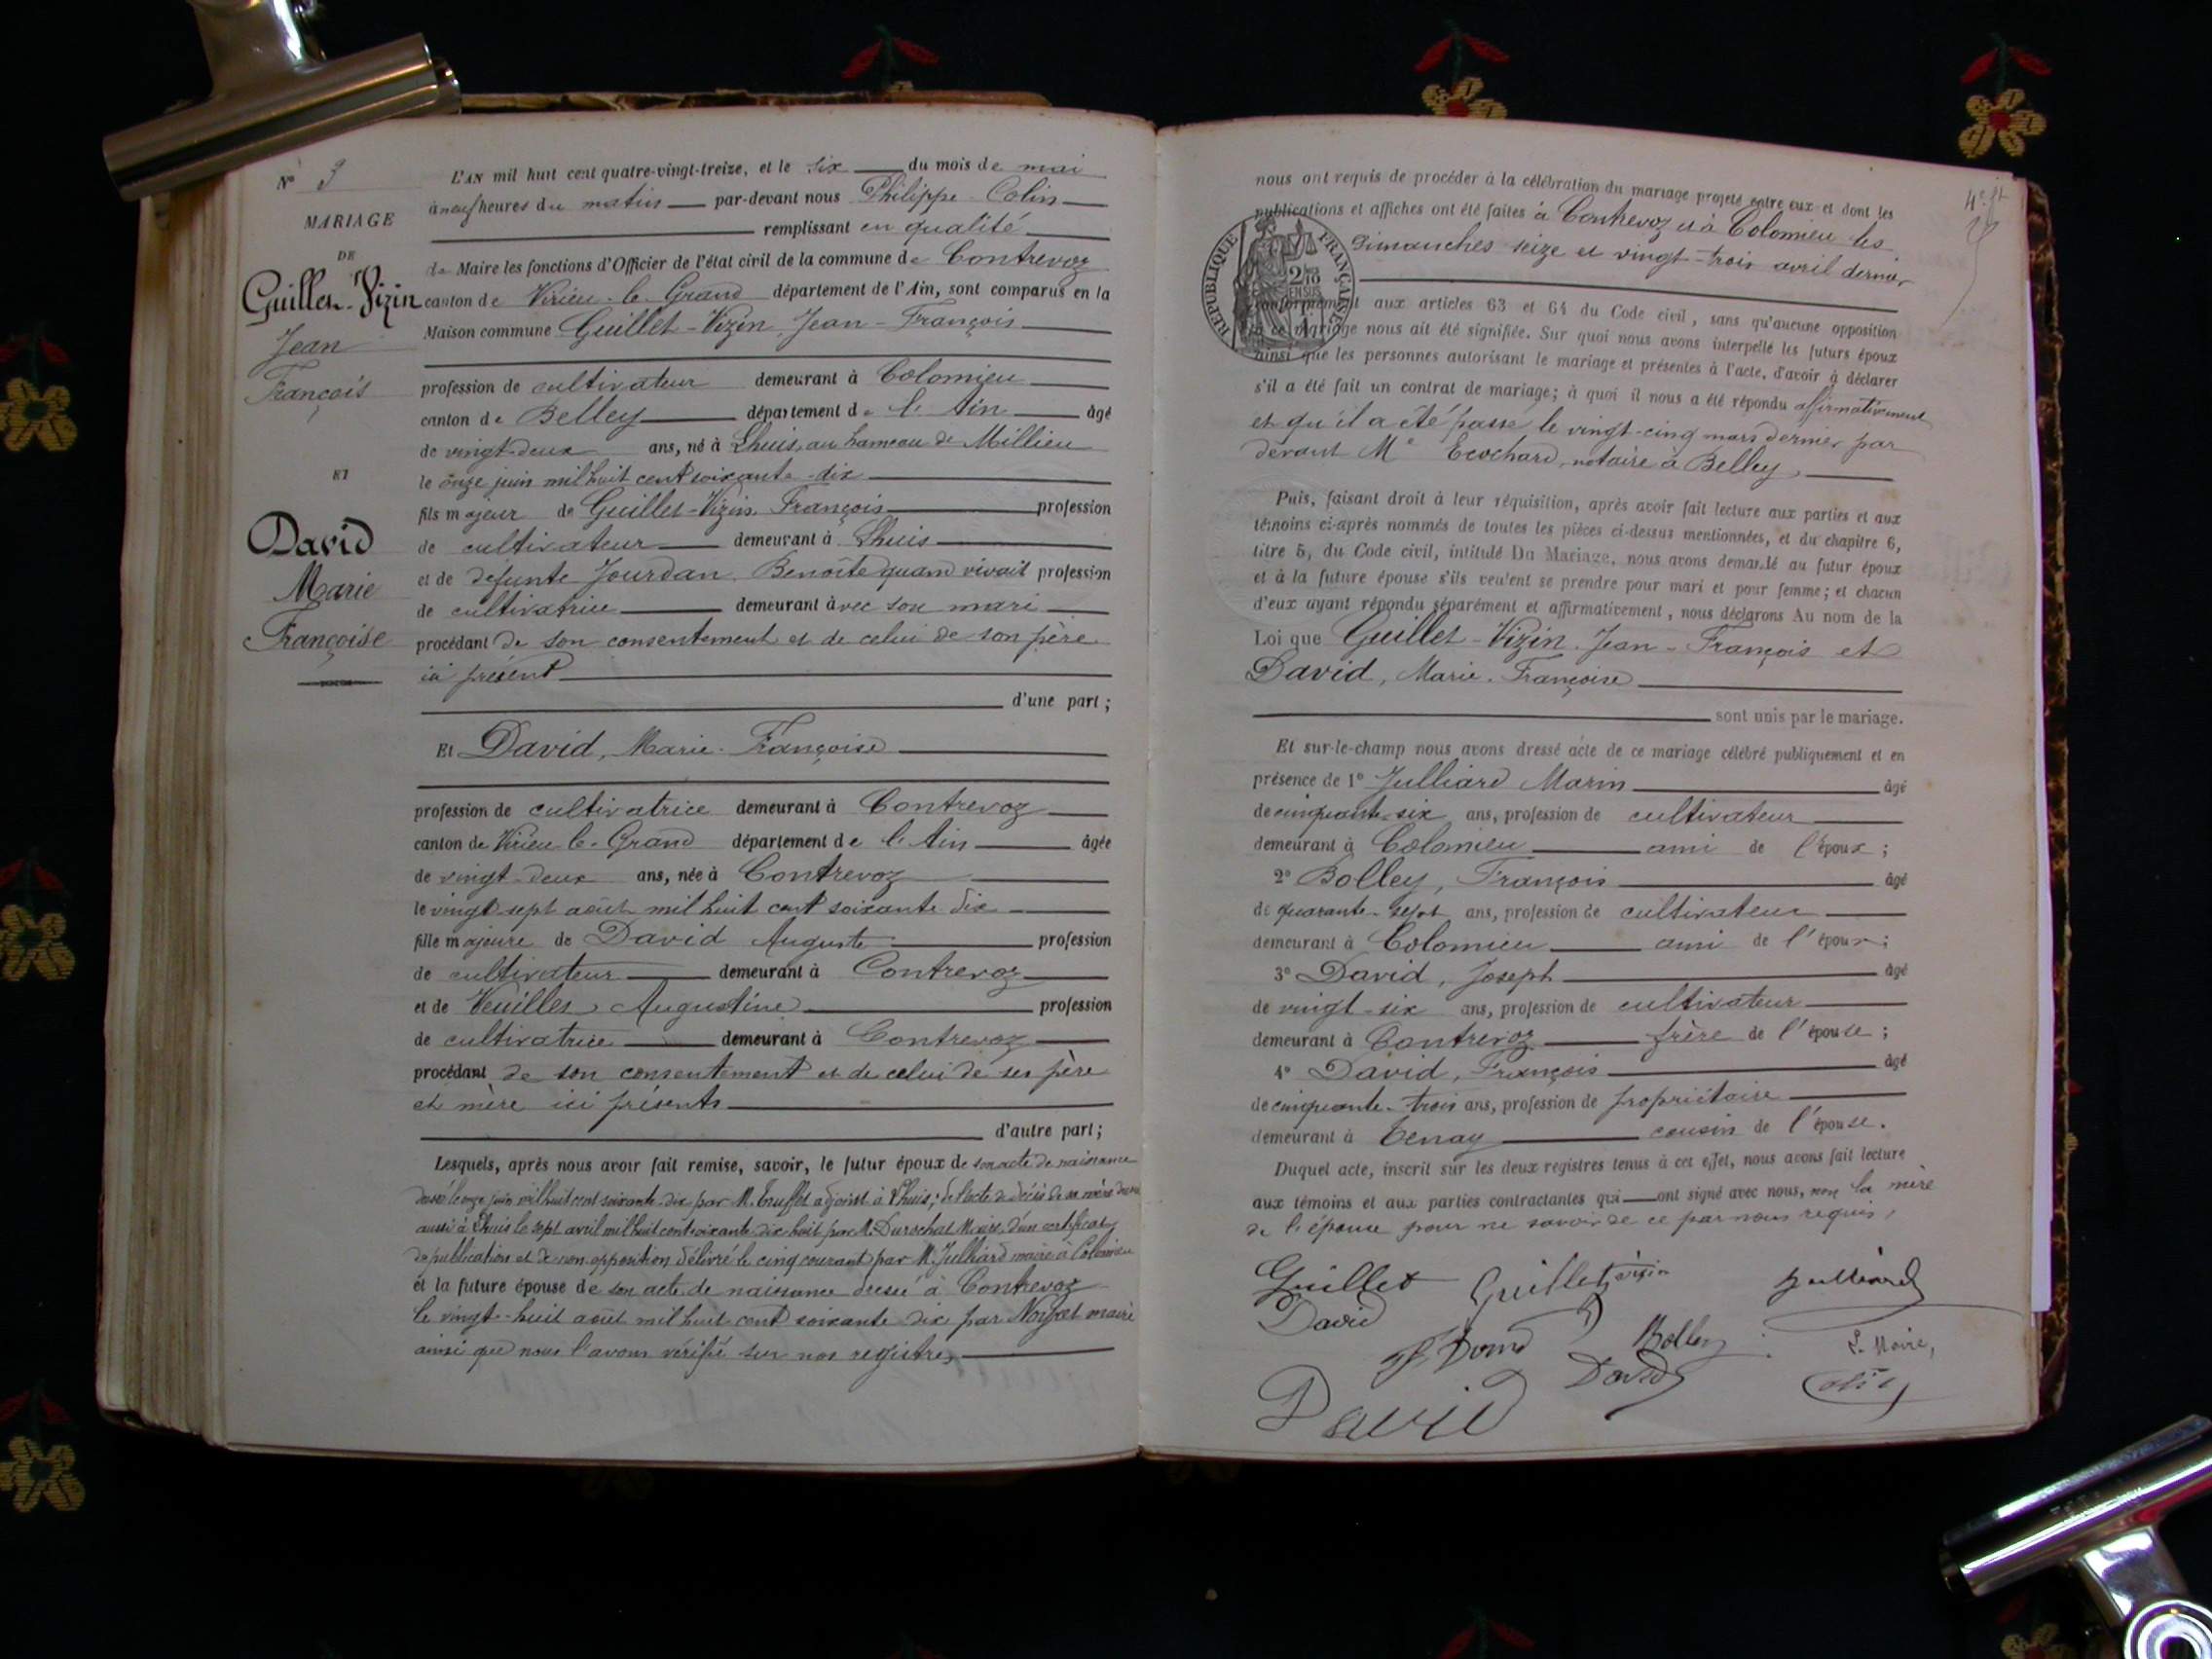 N° 3
MARIAGE
DE
Guillet-Vizin
Jean
François
ET
David
Marie
Françoise
L'AN mil huit cent quatre-vingt-treize, et le six du mois de mai
à neuf heures du matin par-devant nous Philippe Colin
remplissant en qualité
de Maire les fonctions d'Officier de l'état civil de la commune de Contrevoz
canton de Virieu-le-Grand département de l'Ain, sont comparus en la
Maison commune Guillet-Vizin, Jean-François
profession de cultivateur demeurant à Colomieu
canton de Belley département de l'Ain âgé
de vingt-deux ans, né à Lhuis, au hameau de Millieu
le onze juin mil huit cent soixante-dix
fils majeur de Guillet-Vizin, François profession
de cultivateur demeurant à Lhuis
et de défunte Jourdan, Benoîte quand vivait profession
de cultivatrice demeurant avec son mari
procédant de son consentement et de celui de son père
ici présent
d'une part;
Et David, Marie-Françoise
profession de cultivatrice demeurant à Contrevoz
canton de Virieu-le-Grand département de l'Ain âgée
de vingt-deux ans, née à Contrevoz
le vingt-sept août mil huit cent soixante-dix
fille majeure de David Auguste profession
de cultivateur demeurant à Contrevoz
et de Veuillet, Augustine profession
de cultivatrice demeurant à Contrevoz
procédant de son consentement et de celui de ses père
et mère ici présents
d'autre part;
Lesquels, après nous avoir fait remise, savoir, le futur époux de son acte de naissance
dressé le onze juin mil huit cent soixante-dix par M. adjoint à Lhuis; de l'acte de décès de sa mère dressé
aussi à Lhuis le sept avril mil huit cent soixante-dix-huit par M. Durochat Maire, d'un certificat
de publication et de non opposition délivré le cinq courant par M. Julliard maire à Colomieu
et la future épouse de son acte de naissance dressé à Contrevoz
le vingt-huit août mil huit cent soixante-dix par maire
ainsi que nous l'avons vérifié sur nos registres,
nous ont requis de procéder à la célébration du mariage projeté entre eux et dont les
publications et affiches ont été faites à Contrevoz et à Colomieu les
dimanches seize et vingt-trois avril dernier
RÉPUBLIQUE FRANÇAISE
conformément aux articles 63 et 64 du Code civil, sans qu'aucune opposition
à ce mariage nous ait été signifiée. Sur quoi nous avons interpellé les futurs époux
ainsi que les personnes autorisant le mariage et présentes à l'acte, d'avoir à déclarer
s'il a été fait un contrat de mariage; à quoi il nous a été répondu affirmativement
et qu'il a été passé le vingt-cinq mars dernier par
devant Me Ecochard, notaire à Belley,
Puis, faisant droit à leur réquisition, après avoir fait lecture aux parties et aux
témoins ci-après nommés de toutes les pièces ci-dessus mentionnées, et du chapitre 6,
titre 5, du Code civil, intitulé Du Mariage, nous avons demandé au futur époux
et à la future épouse s'ils veulent se prendre pour mari et pour femme; et chacun
d'eux ayant répondu séparément et affirmativement, nous déclarons Au nom de la
Loi que Guillet-Vizin, Jean-François et
David, Marie-Françoise
sont unis par le mariage.
Et sur-le-champ nous avons dressé acte de ce mariage célébré publiquement et en
présence de 1° Julliard Marin âgé
de cinquante-six ans, profession de cultivateur
demeurant à Colomieu ami de l'époux;
2° Bolley, François âgé
de quarante-sept ans, profession de cultivateur
demeurant à Colomieu ami de l'époux;
3° David, Joseph âgé
de vingt-six ans, profession de cultivateur
demeurant à Contrevoz frère de l'épouse;
4° David, François âgé
de cinquante-trois ans, profession de propriétaire
demeurant à Tenay cousin de l'épouse.
Duquel acte, inscrit sur les deux registres tenus à cet effet, nous avons fait lecture
aux témoins et aux parties contractantes qui ont signé avec nous, non la mère
de l'épouse pour ne savoir de ce par nous requis,
Guillet Guillet vizin Julliard
David
Bolley Le Maire,
David Colin
David